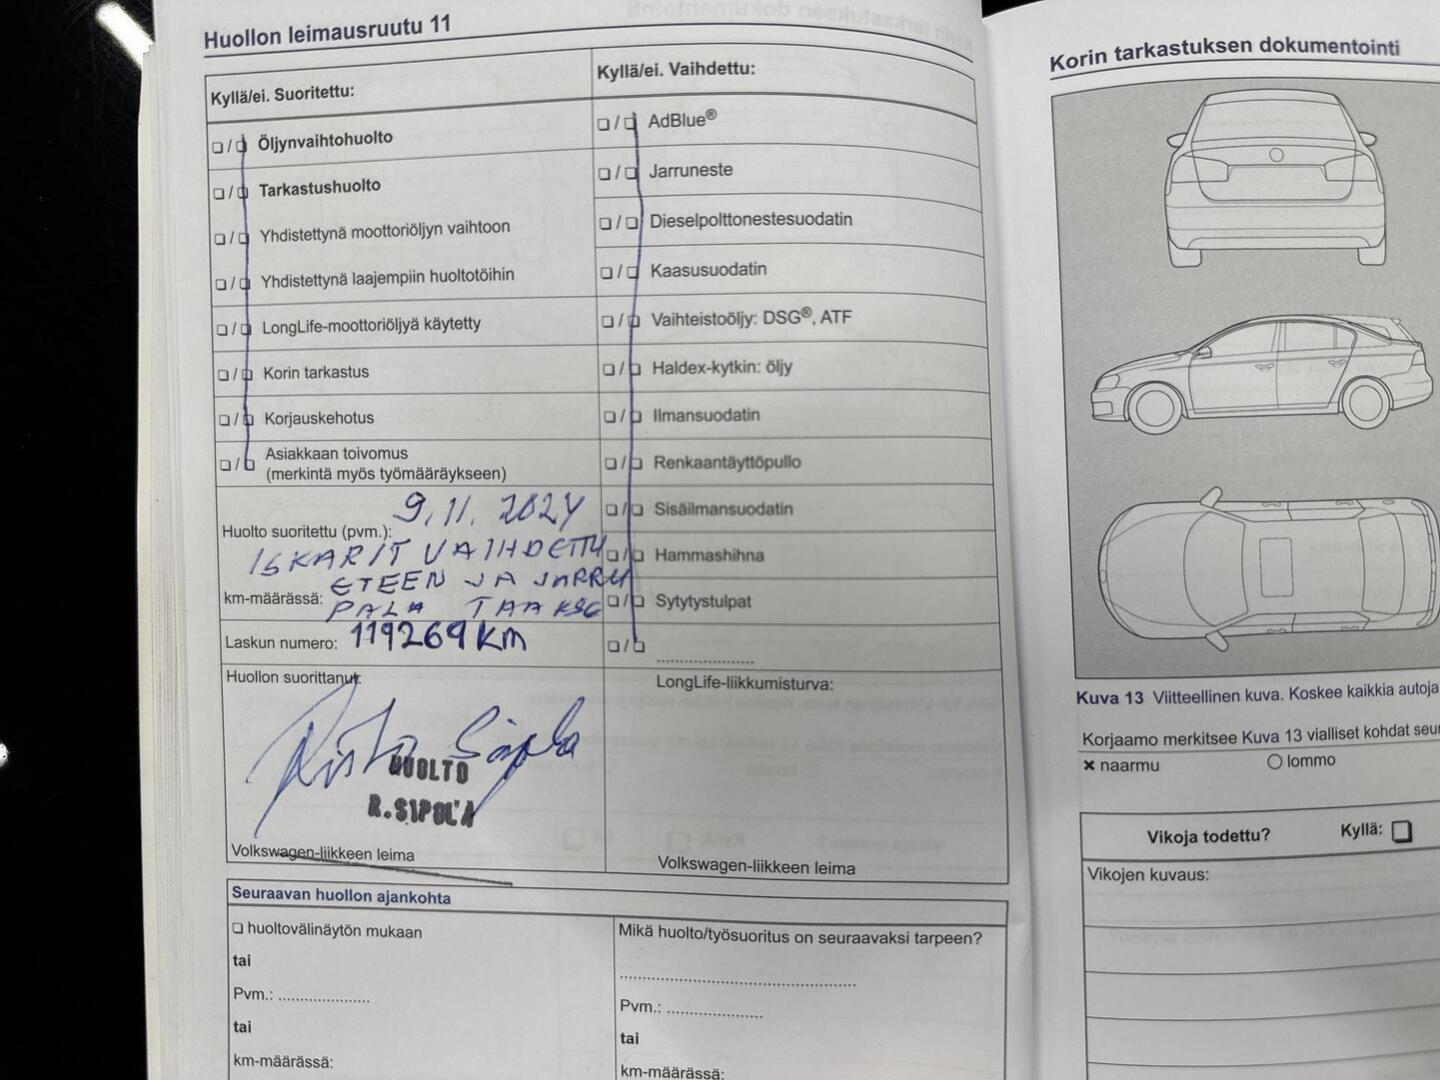 Huollon leimausruutu 11
Kyllä/ei. Suoritettu:
Öljynvaihtohuolto
Tarkastushuolto
Yhdistettynä moottoriöljyn vaihtoon
Yhdistettynä laajempiin huoltotöihin
LongLife-moottoriöljyä käytetty
Korin tarkastus
Korjauskehotus
Asiakkaan toivomus
(merkintä myös työmääräykseen)
Huolto suoritettu (pvm.): 9.11.2024
ISKARIT VAIHDETTU
ETEEN JA JARRU
km-määrässä: PALA TAAKSE
Laskun numero: 119269 KM
Huollon suorittanut:
Risto Sipola
HUOLTO
R.SIPOLA
Volkswagen-liikkeen leima
Kyllä/ei. Vaihdettu:
AdBlue®
Jarruneste
Dieselpolttonestesuodatin
Kaasusuodatin
Vaihteistoöljy: DSG®, ATF
Haldex-kytkin: öljy
Ilmansuodatin
Renkaantäyttöpullo
Sisäilmansuodatin
Hammashihna
Sytytystulpat
LongLife-liikkumisturva:
Volkswagen-liikkeen leima
Seuraavan huollon ajankohta
huoltovälinäytön mukaan
tai
Pvm.:
tai
km-määrässä:
Mikä huolto/työsuoritus on seuraavaksi tarpeen?
Pvm.:
tai
km-määrässä:
Korin tarkastuksen dokumentointi
Kuva 13 Viitteellinen kuva. Koskee kaikkia autoja
Korjaamo merkitsee Kuva 13 vialliset kohdat
naarmu
lommo
Vikoja todettu? Kyllä:
Vikojen kuvaus: